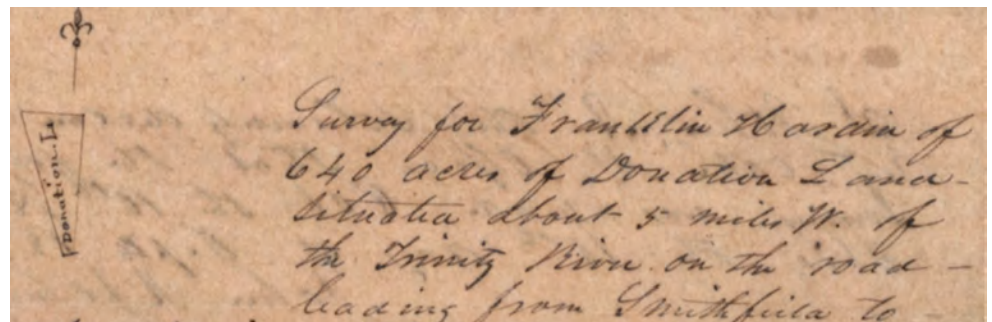 Donation. L
Survey for Franklin Hardin of
640 acres of Donation Land
situated about 5 miles W. of
the Trinity River on the road
leading from Smithfield to